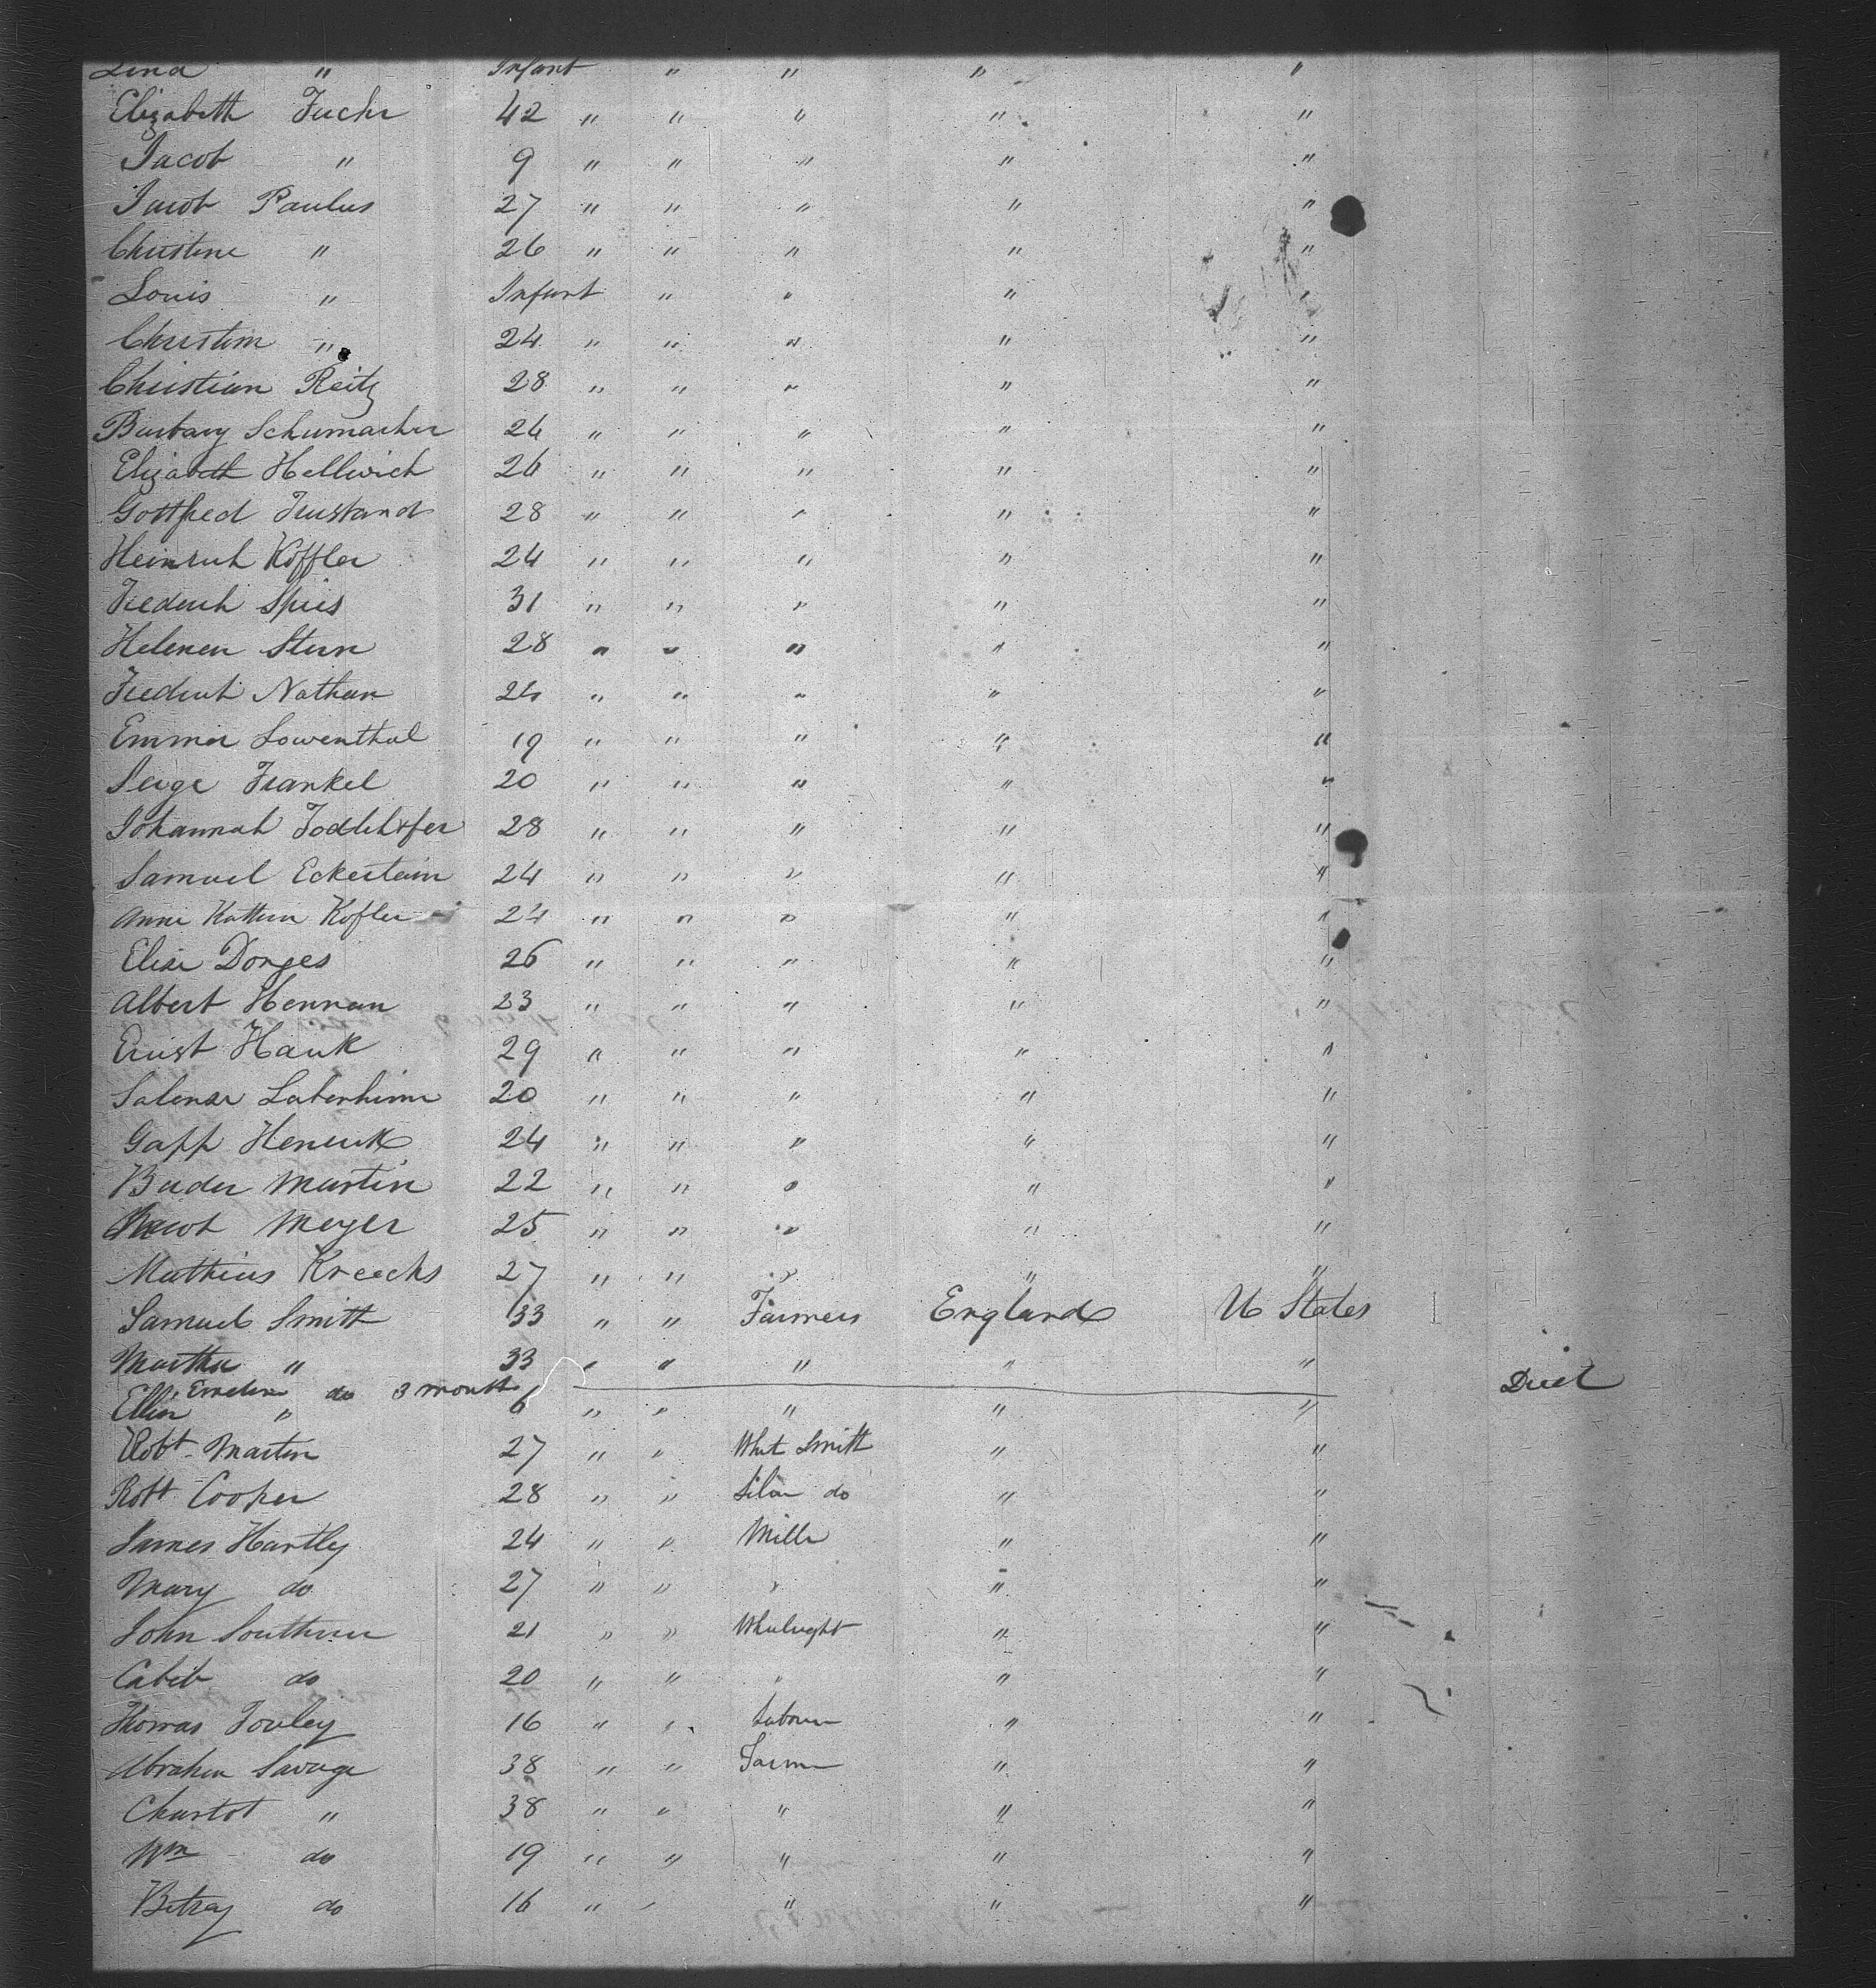 Lina " Infant " " " "
Elizabeth Fuchs 42 " " " " "
Jacob " 9 " " " " "
Jacob Paulus 27 " " " " "
Christine " 26 " " " " "
Louis " Infant " " " "
Christine " 24 " " " " "
Christian Reitz 28 " " " " "
Barbary Schumacher 26 " " " " "
Elizabeth Hellwich 26 " " " " "
Gottfred 28 " " " " "
Heinrich Köffler 24 " " " " "
Frederich Spies 31 " " " " "
Helenen Stern 28 " " " " "
Frederich Nathan 24 " " " " "
Emma Lowenthal 19 " " " " "
Frankel 20 " " " " "
Johannah 28 " " " " "
Samuel Eckertain 24 " " " " "
Anna Kathern Kofler 24 " " " " "
Elise Dorges 26 " " " " "
Albert Henman 23 " " " " "
Ernst Hank 29 " " " " "
20 " " " " "
Gapp Henrick 24 " " " " "
Bader Martin 22 " " " " "
Jacob Meyer 25 " " " " "
Mathias Kreechs 27 " " " " "
Samuel Smith 33 " " Farmers England U States
Martha " 33 " " " " "
Emeline do 3 months Died
Ellen " 6 " " " " "
Robt Martin 27 " " Wht Smith " "
Robt Cooper 28 " " Silver do " "
James Hartley 24 " " Miller " "
Mary do 27 " " " " "
John Southern 21 " " Wheelright " "
Caleb do 20 " " " " "
Thomas Fowley 16 " " Laborer " "
Abraham Savage 38 " " Farmer " "
Charlot " 38 " " " " "
Wm do 19 " " " " "
Betsey do 16 " " " " "